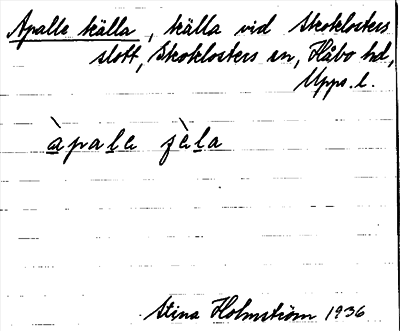 Apalle källa, källa vid Skoklosters
slott, Skoklosters sn, Håbo hd,
Upps. l.
àpale ɕèla
Stina Holmström 1936